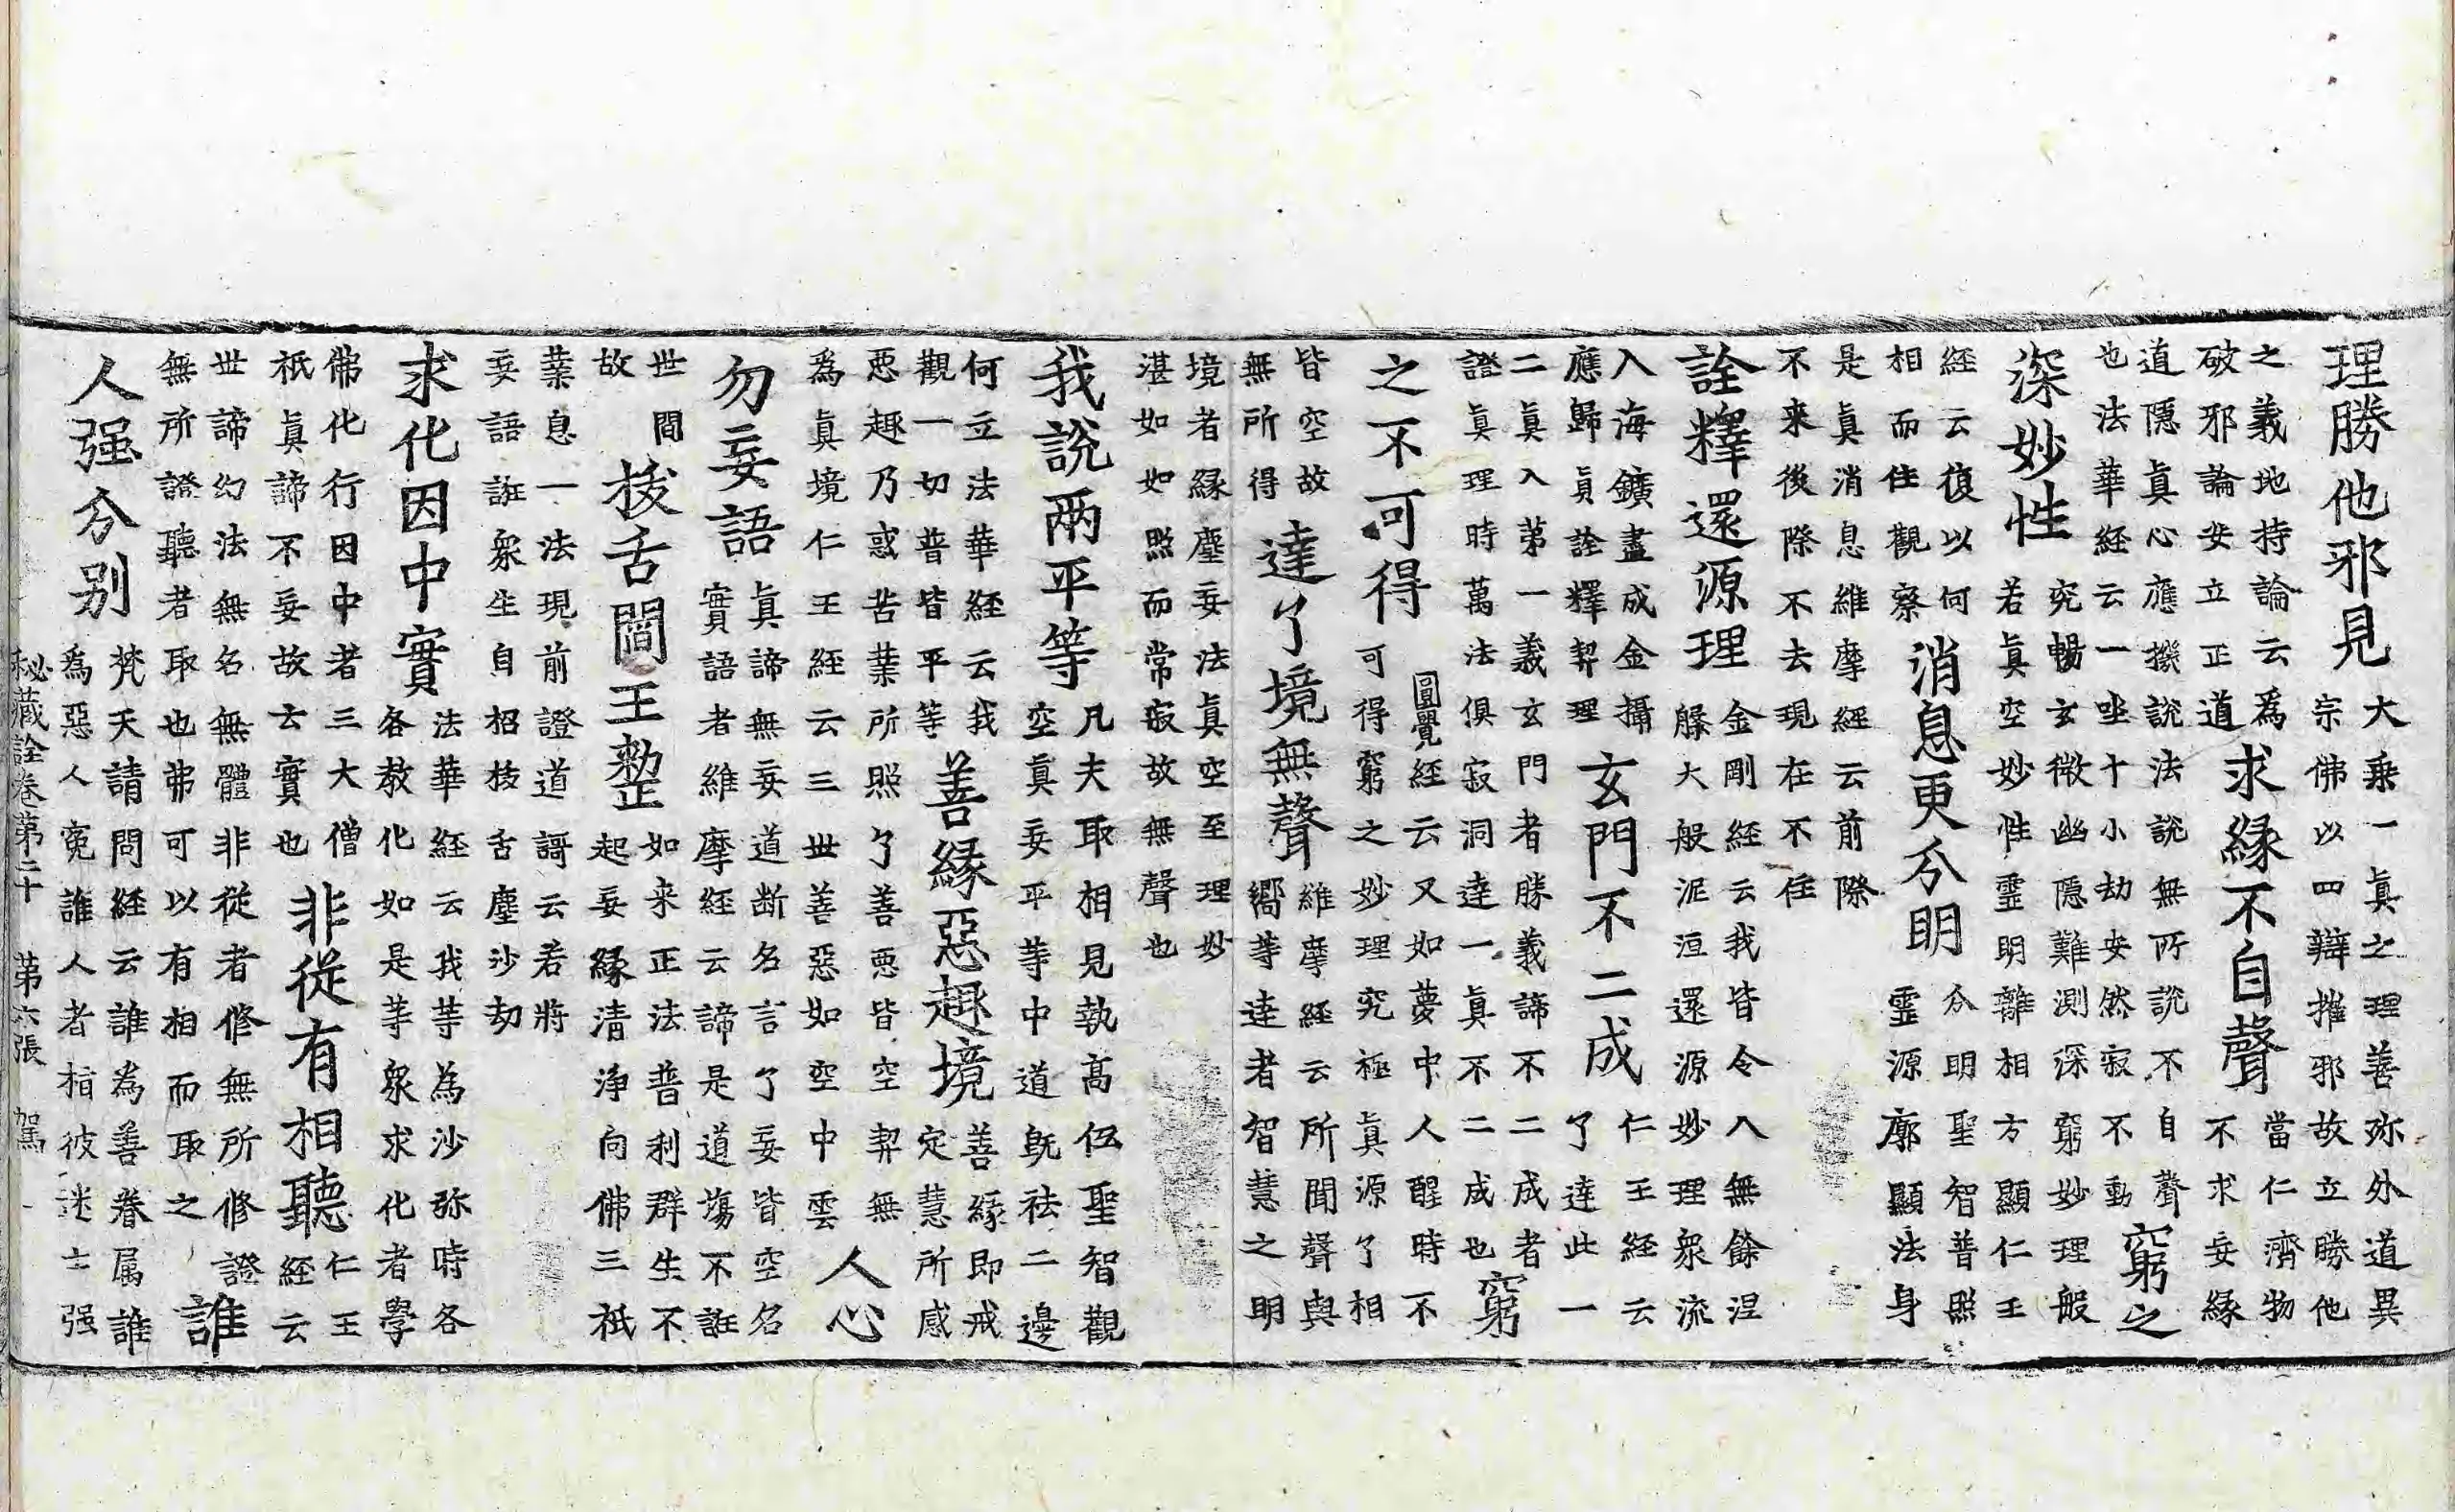 理勝他邪見
大乘一眞之理善弥外道異
宗佛以四辯摧邪故立勝他
之義地持論云為
破邪論妄立正道
求緣不自聲
當仁濟物
不求妄緣
道隱眞心應擬說法說無所說不自聲
也法華経云一坐十小劫安然寂不動
窮之
深妙性
究暢玄微幽隱難測深窮妙理般
若眞空妙性靈明離相方顯仁王
経云復以何
相而住觀察
消息更分明
分明聖智普照
靈源廓顯法身
是眞消息維摩経云前際
不来後際不去現在不住
詮釋還源理
金剛経云我皆令入無餘涅
槃大般泥洹還源妙理衆流
入海鑛盡成金金攝
應歸眞詮釋契理
玄門不二成
仁王経云
了達此一
二眞入第一義玄門者勝義諦不二成者
證眞理時萬法俱寂洞達一眞不二成也
窮
之不可得
圓覺経云又如夢中人醒時不
可得窮之妙理究極眞源了相
皆空故
無所得
達了境無聲
維摩経云所聞聲與
嚮等達者智慧之明
境者緣塵妄法眞空至理妙
湛如如照而常寂故無聲也
我說兩平等
凡夫取相見執高伍聖智觀
空眞妄平等中道旣祛二邊
何立法華経云我
觀一切普皆平等
善緣惡趣境
善緣即戒
定慧所感
惡趣乃惑苦業所照了善惡皆空契無
為眞境仁王経云三世善惡如空中雲
人心
勿妄語
眞諦無妄道断名言了妄皆空名
實語者維摩経云諦是道場不誑
世間
故
拔舌閻王整
如来正法普利群生不
起妄緣清淨向佛三祇
業息一法現前證道謌云若將
妄語誑衆生自招拔舌塵沙劫
求化因中實
法華経云我等為沙弥時各
各教化如是等衆求化者學
佛化行因中者三大僧
祇眞諦不妄故云實也
非從有相聽
仁王
経云
世諦幻法無名無體非從者修無所修證
無所證聽者取也弗可以有相而取之
誰
人强分别
梵天請問経云誰為善眷属誰
為惡人寃誰人者指彼迷士强
秘藏詮卷第二十 第六張 駕